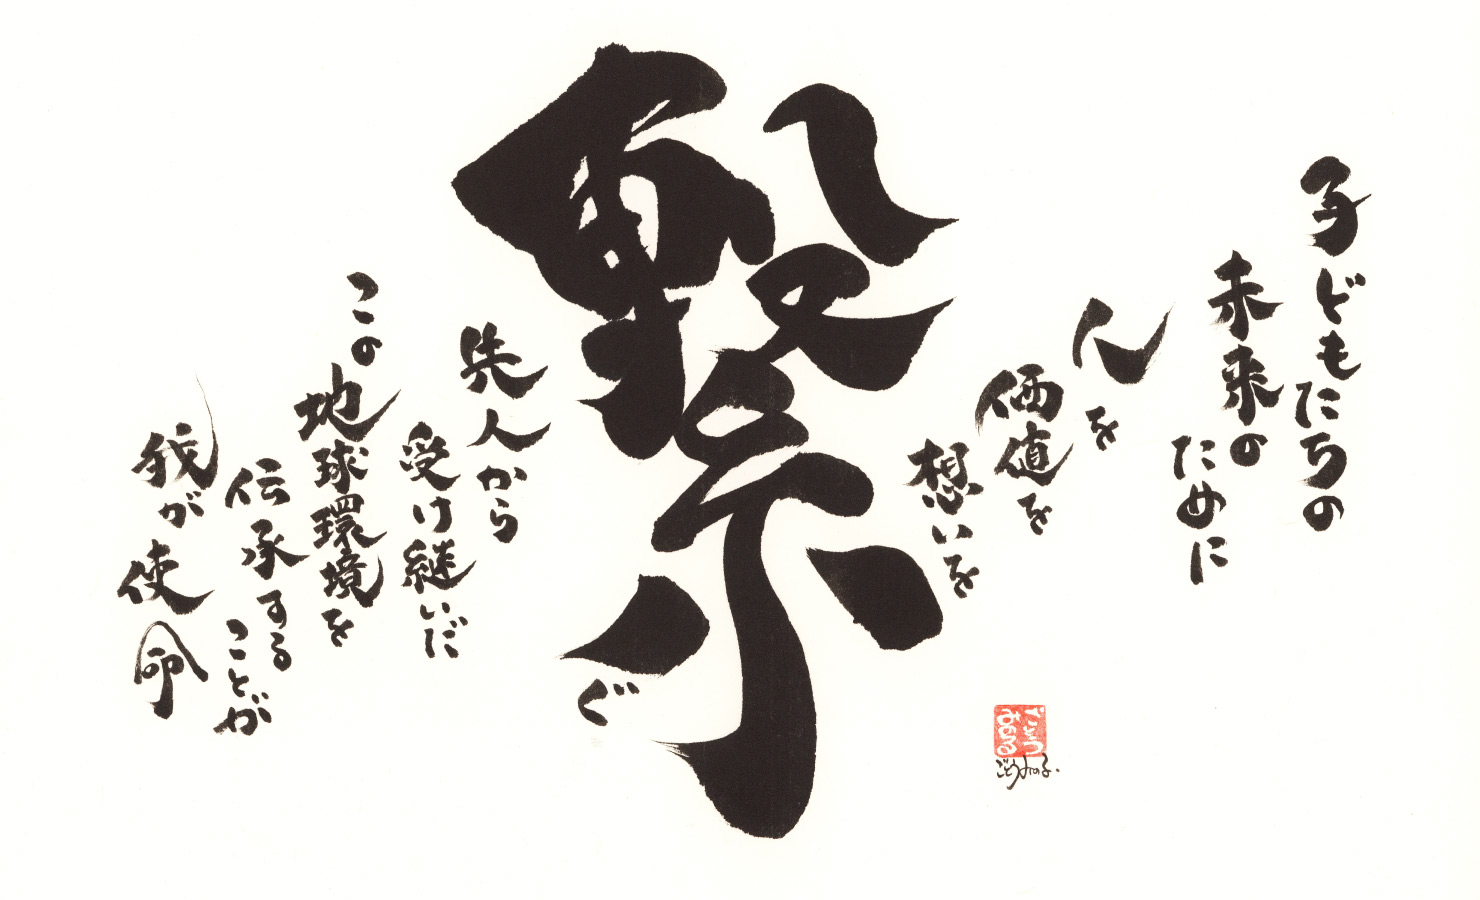 子どもたちの
未来の
ために
人を
価値を
想いを
繋ぐ
先人から
受け継いだ
この地球環境を
伝承する
ことが
我が使命
ごとう
みのる